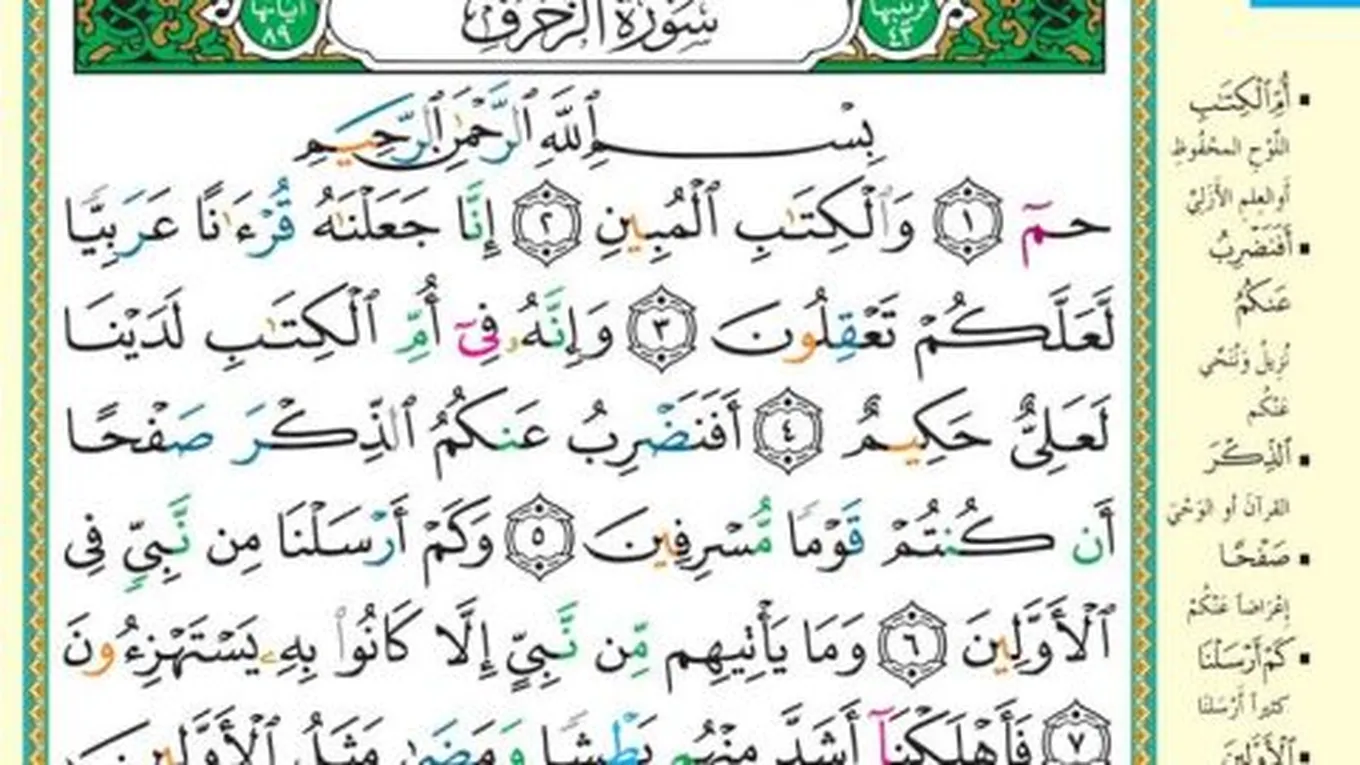 ترتيبها ٤٣
سُورَةُ الزُّخْرُفِ
آياتها ٨٩
بِسْمِ ٱللَّهِ ٱلرَّحْمَٰنِ ٱلرَّحِيمِ
حمٓ ١ وَٱلْكِتَٰبِ ٱلْمُبِينِ ٢ إِنَّا جَعَلْنَٰهُ قُرْءَٰنًا عَرَبِيًّا
لَّعَلَّكُمْ تَعْقِلُونَ ٣ وَإِنَّهُۥ فِىٓ أُمِّ ٱلْكِتَٰبِ لَدَيْنَا
لَعَلِىٌّ حَكِيمٌ ٤ أَفَنَضْرِبُ عَنكُمُ ٱلذِّكْرَ صَفْحًا
أَن كُنتُمْ قَوْمًا مُّسْرِفِينَ ٥ وَكَمْ أَرْسَلْنَا مِن نَّبِىٍّ فِى
ٱلْأَوَّلِينَ ٦ وَمَا يَأْتِيهِم مِّن نَّبِىٍّ إِلَّا كَانُوا۟ بِهِۦ يَسْتَهْزِءُونَ
٧ فَأَهْلَكْنَآ أَشَدَّ مِنْهُم بَطْشًا وَمَضَىٰ مَثَلُ ٱلْأَوَّلِينَ
أُمِّ ٱلْكِتَٰبِ
اللَّوْحِ المحْفُوظِ
أو العِلمِ الأَزَلِيِّ
أَفَنَضْرِبُ
عَنكُمُ
نُزِيلُ وَنُنَحِّي
عَنْكُم
ٱلذِّكْرَ
القرآنَ أو الوَحْيَ
صَفْحًا
إعْرَاضاً عَنْكُمْ
كَمْ أَرْسَلْنَا
كثيراً أرْسَلنَا
ٱلْأَوَّلِينَ